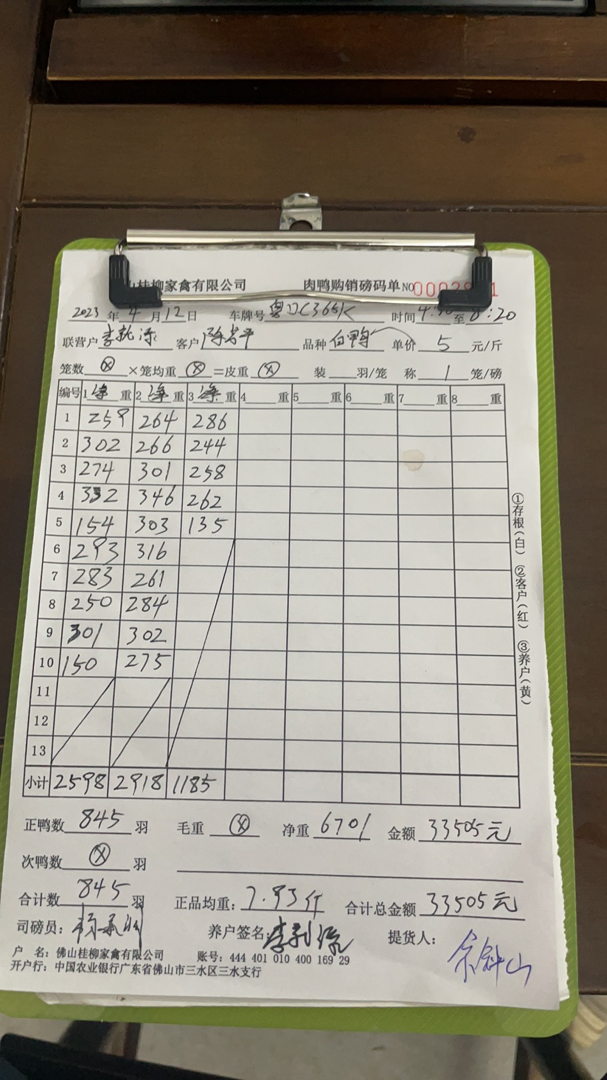 山桂柳家禽有限公司 肉鸭购销磅码单 NO
2023 年 4 月 12 日 车牌号 时间 至 8:20
联营户 客户 品种 白鸭 单价 5 元/斤
笼数 ⊗ ×笼均重 ⊗ =皮重 ⊗ 装 羽/笼 称 1 笼/磅
编号 1 净 重 2 净 重 3 净 重 4 重 5 重 6 重 7 重 8 重
1 259 264 286
2 302 266 244
3 274 301 258
4 332 346 262
5 154 303 135
6 293 316
7 283 261
8 250 284
9 301 302
10 150 275
11
12
13
小计 2598 2918 1185
①存根(白) ②客户(红) ③养户(黄)
正鸭数 845 羽 毛重 ⊗ 净重 6701 金额 33505元
次鸭数 ⊗ 羽
合计数 845 羽 正品均重: 7.93斤 合计总金额 33505元
司磅员: 养户签名: 提货人: 余钟山
户 名: 佛山桂柳家禽有限公司 账号: 444 401 010 400 169 29
开户行: 中国农业银行广东省佛山市三水区三水支行